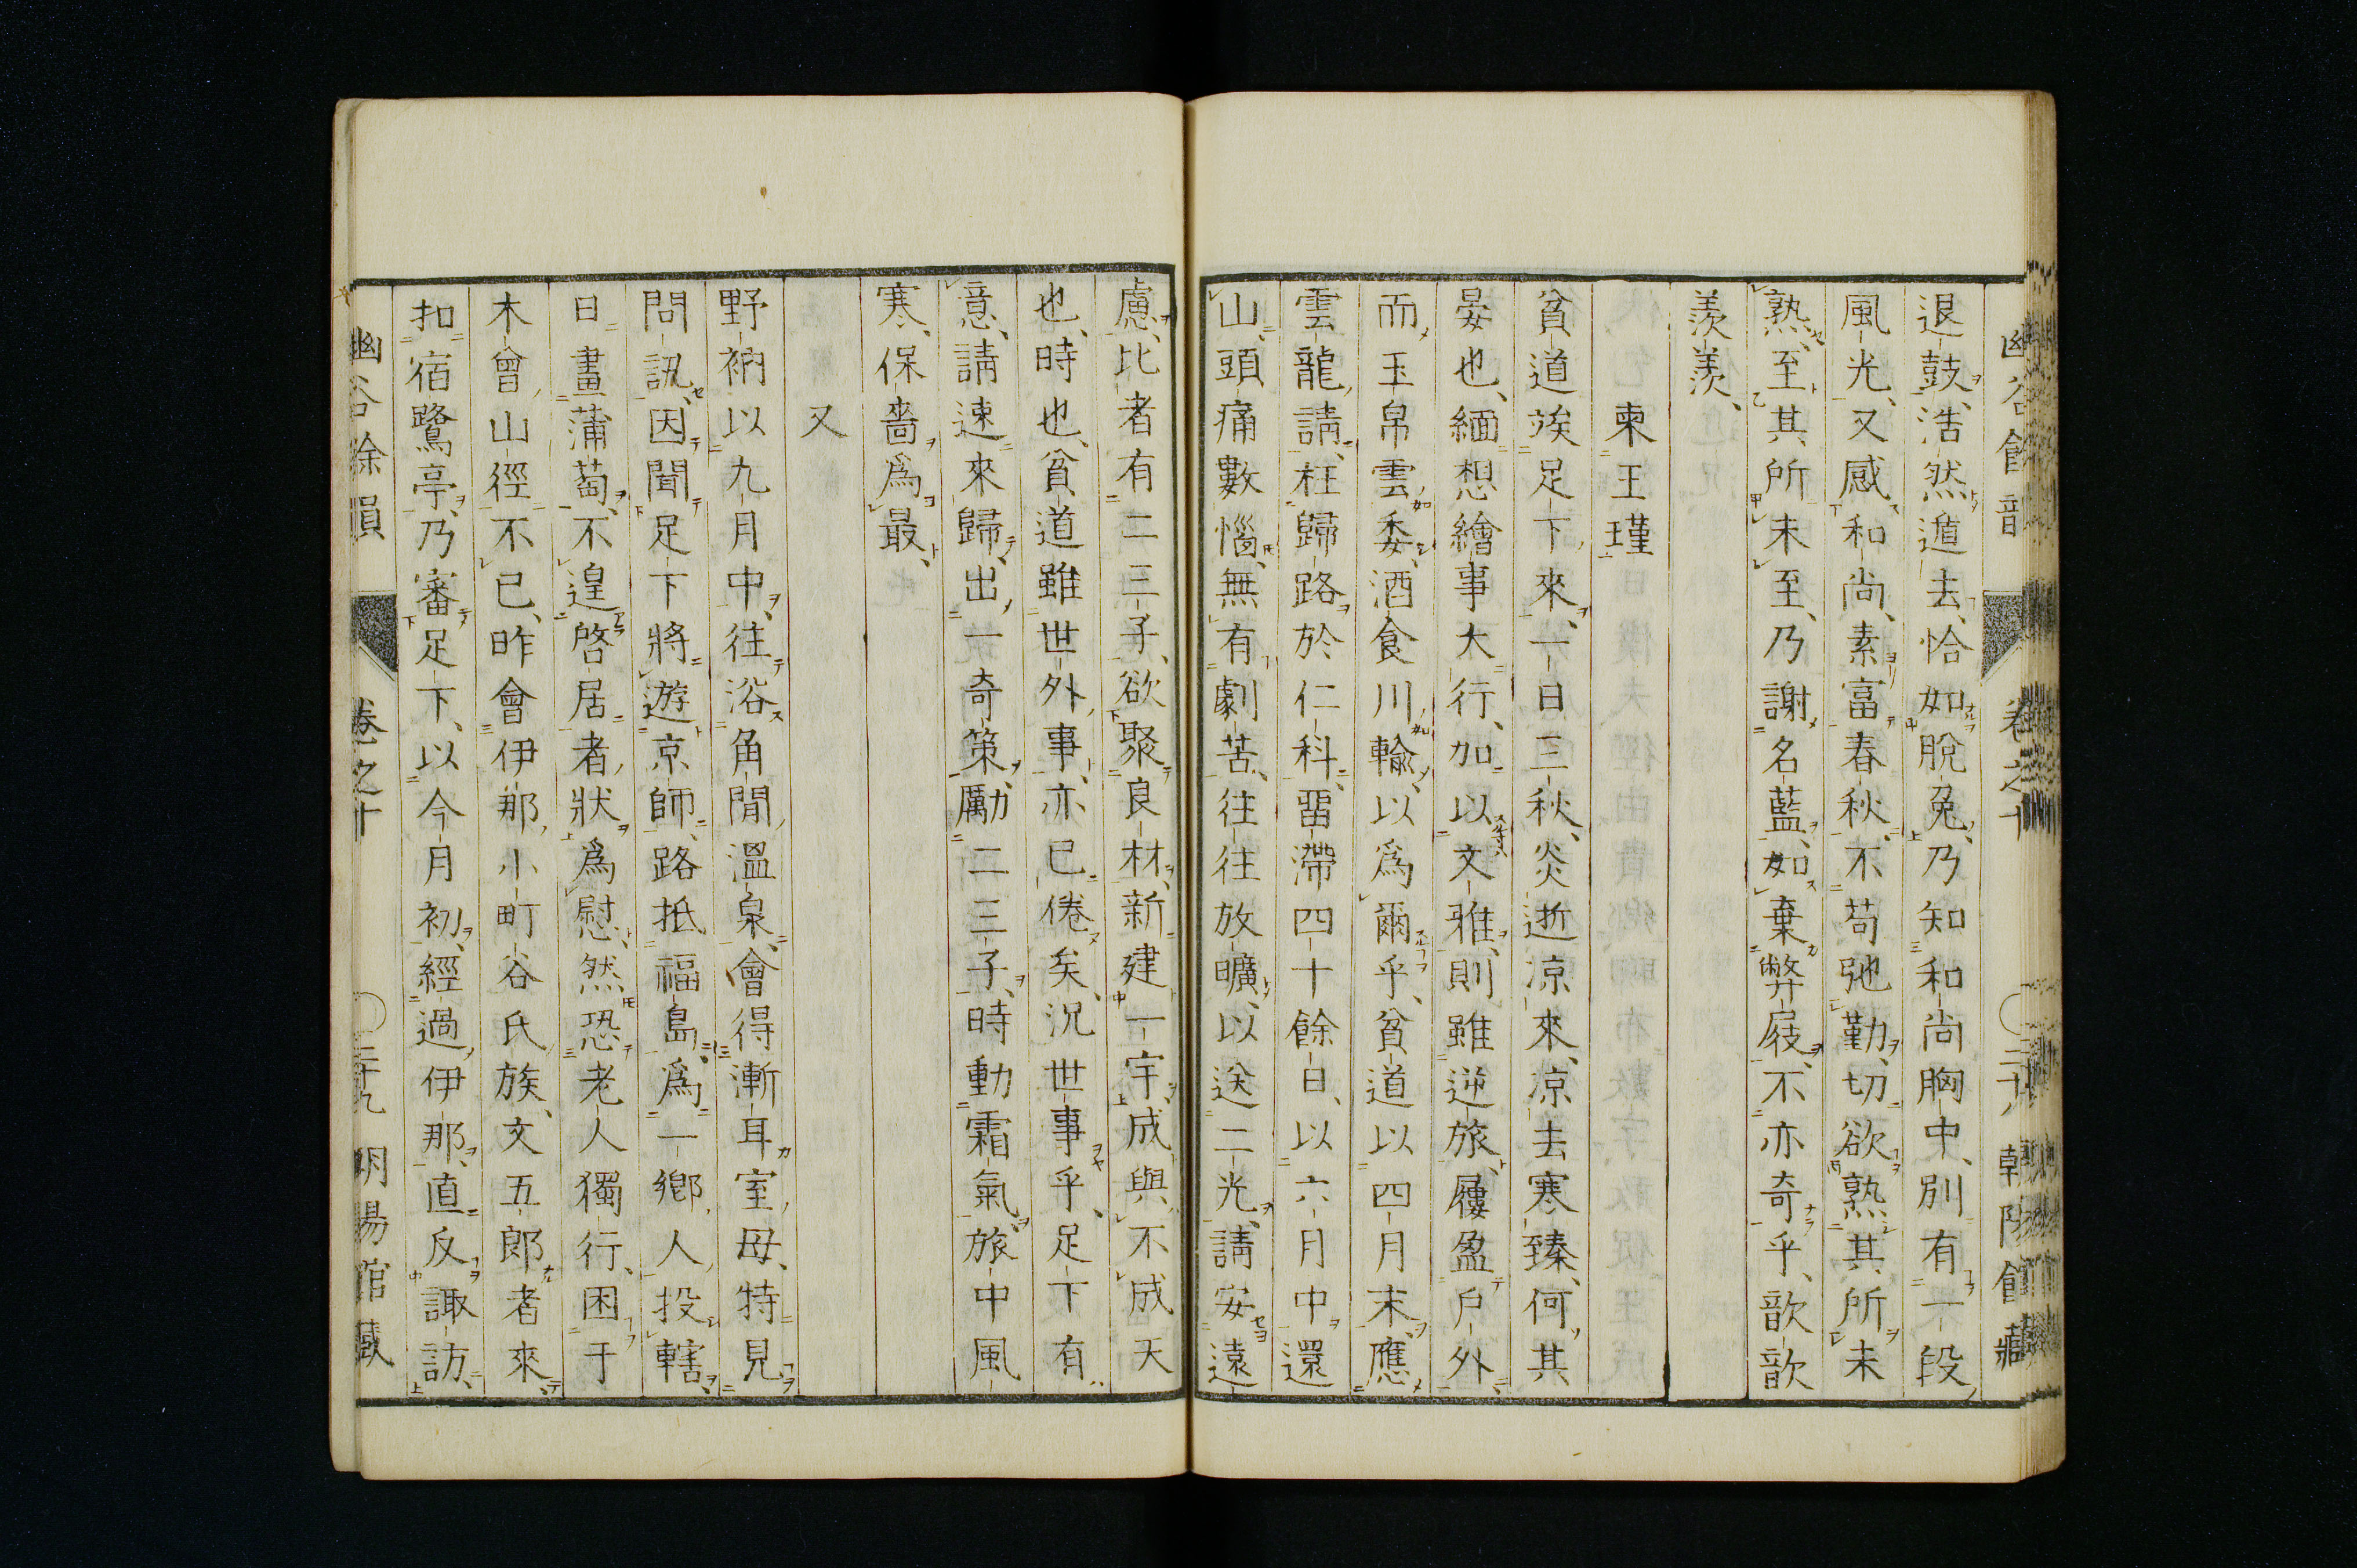 退鼓、浩然遁去、恰如脫兔、乃知和尚胸中、別有一段
風光、又感和尚、素富春秋、不苟弛勤、切欲熟其所未
熟、至其所未至、乃謝名藍、如棄弊屐、不亦奇乎、歆歆
羨羨、
柬王瑾
貧道竢足下來、一日三秋、炎逝凉來、凉去寒臻、何其
晏也、緬想繪事大行、加以文雅、則雖逆旅、屨盈戶外、
而玉帛雲委、酒食川輸、以爲爾乎、貧道以四月末、應
雲龍請、枉歸路於仁科、畱滯四十餘日、以六月中還
山、頭痛數惱、無有劇苦、往往放曠、以送二光、請安遠
慮、比者有二三子、欲聚良材、新建一宇、成與不成天
也、時也、貧道雖世外事、亦已倦矣、況世事乎、足下有
意、請速來歸、出一奇策、勵二三子、時動霜氣、旅中風
寒、保嗇爲最、
又
野衲以九月中、往浴角間溫泉、會得漸耳室母、特見
問訊、因聞足下將遊京師、路抵福島、爲一鄕人投轄、
日畫蒲萄、不遑啓居者、狀爲慰、然恐老人獨行、困于
木曾山徑不已、昨會伊那小町谷氏族、文五郎者來、
扣宿鷺亭、乃審足下、以今月初、經過伊那、直反諏訪、
幽谷餘韻 卷之十 三十九 朝陽館藏